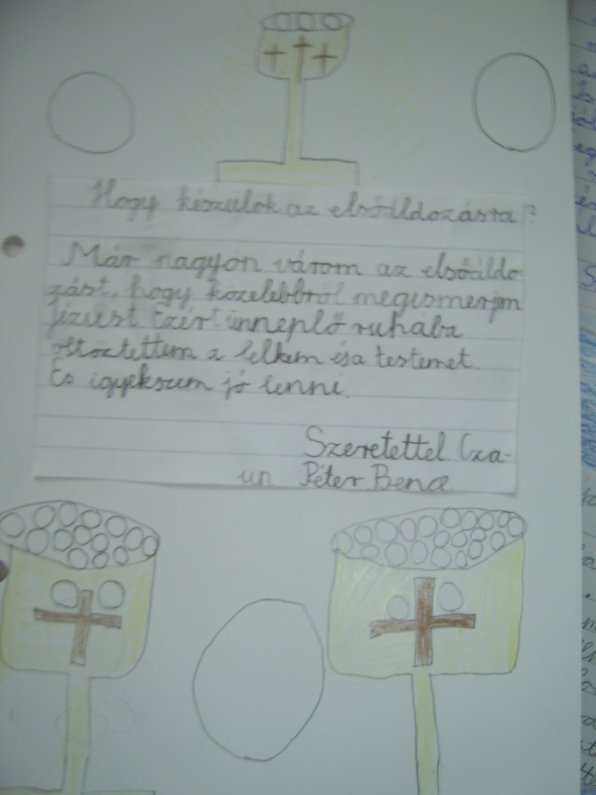 Hogy készülök az elsőáldozásra?
Már nagyon várom az elsőáldo-
zást, hogy közelebbről megismerjem
Jézust Ezért ünneplő ruhába
öltöztettem a lelkem és a testemet.
És igyekszem jó lenni.
Szeretettel Cza-
un Péter Bence